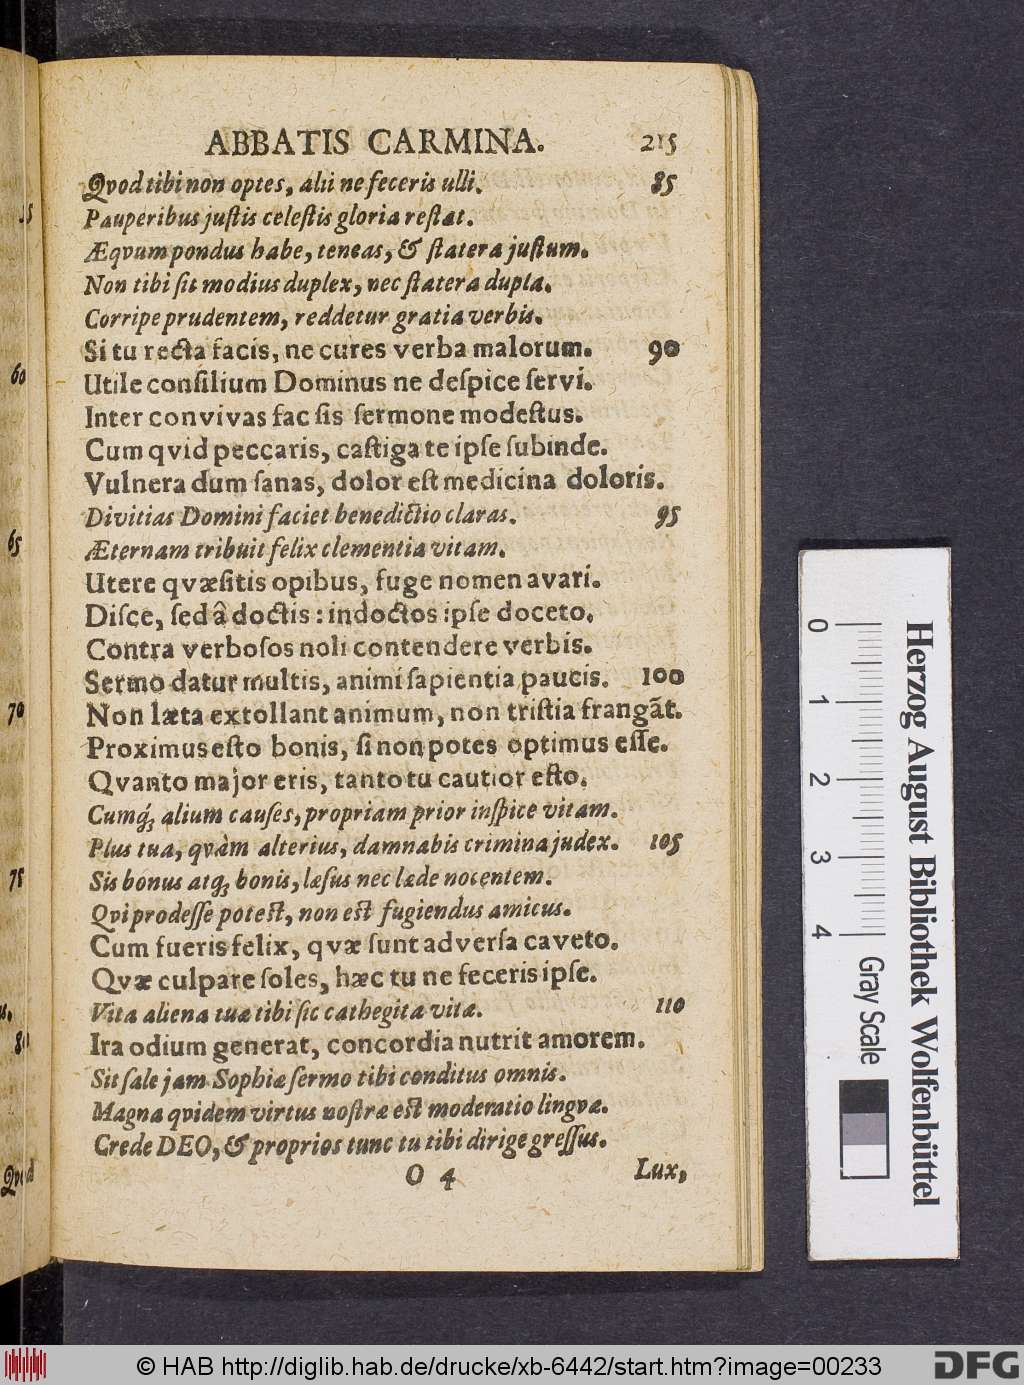 ABBATIS CARMINA. 215
Qvod tibi non optes, alii ne feceris ulli. 85
Pauperibus juſtis celeſtis gloria reſtat.
Æqvum pondus habe, teneas, & ſtatera juſtum.
Non tibi ſit modius duplex, nec ſtatera dupla.
Corripe prudentem, reddetur gratia verbis.
Si tu recta facis, ne cures verba malorum. 90
Utile conſilium Dominus ne deſpice ſervi.
Inter convivas fac ſis ſermone modeſtus.
Cum qvid peccaris, caſtiga te ipſe ſubinde.
Vulnera dum ſanas, dolor eſt medicina doloris.
Divitias Domini faciet benedictio claras. 95
Æternam tribuit felix clementia vitam.
Utere qvæſitis opibus, fuge nomen avari.
Diſce, ſed â doctis: indoctos ipſe doceto.
Contra verboſos noli contendere verbis.
Sermo datur multis, animi ſapientia paucis. 100
Non læta extollant animum, non triſtia frangāt.
Proximus eſto bonis, ſi non potes optimus eſſe.
Qvanto major eris, tanto tu cautior eſto.
Cumq́; alium cauſes, propriam prior inſpice vitam.
Plus tua, qvàm alterius, damnabis crimina judex. 105
Sis bonus atq; bonis, læſus nec læde nocentem.
Qvi prodeſſe poteſt, non eſt fugiendus amicus.
Cum fueris felix, qvæ ſunt adverſa caveto.
Qvæ culpare ſoles, hæc tu ne feceris ipſe.
Vita aliena tuæ tibi ſic cathegita vitæ. 110
Ira odium generat, concordia nutrit amorem.
Sit ſale jam Sophiæ ſermo tibi conditus omnis.
Magna qvidem virtus noſtræ eſt moderatio lingvæ.
Crede DEO, & proprios tunc tu tibi dirige greſſus.
O 4 Lux,
60
65
70
75
0 1 2 3 4
Herzog August Bibliothek Wolfenbüttel
Gray Scale
© HAB http://diglib.hab.de/drucke/xb-6442/start.htm?image=00233
DFG